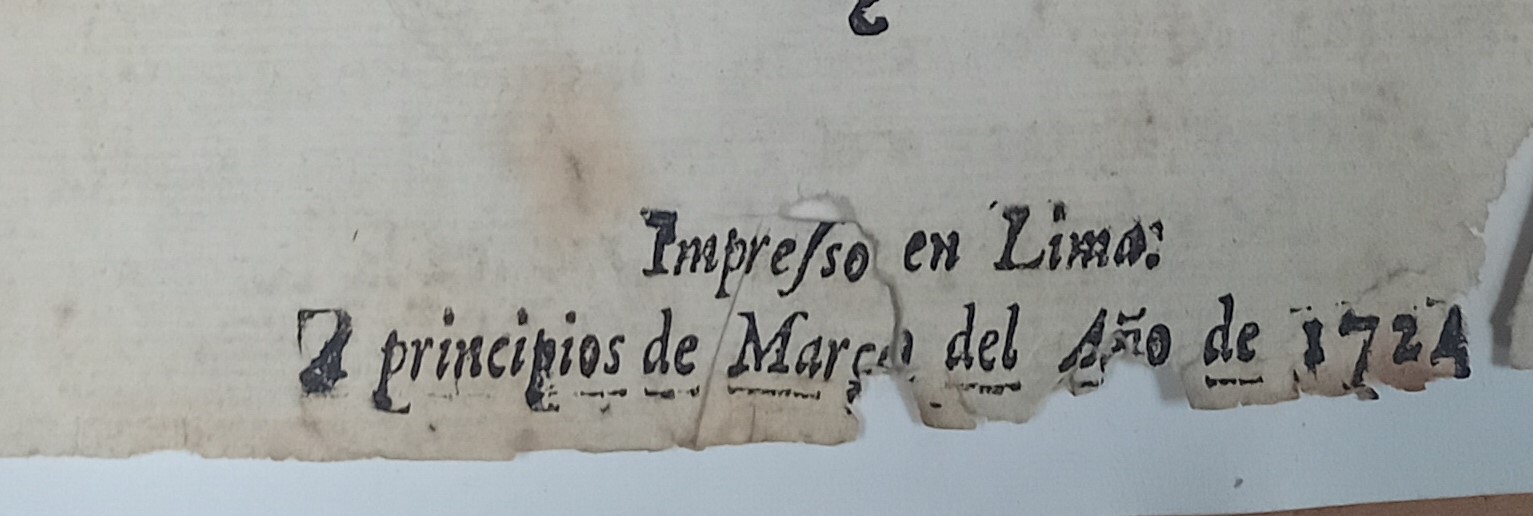 Impreſso en Lima:
A principios de Março del Año de 1724